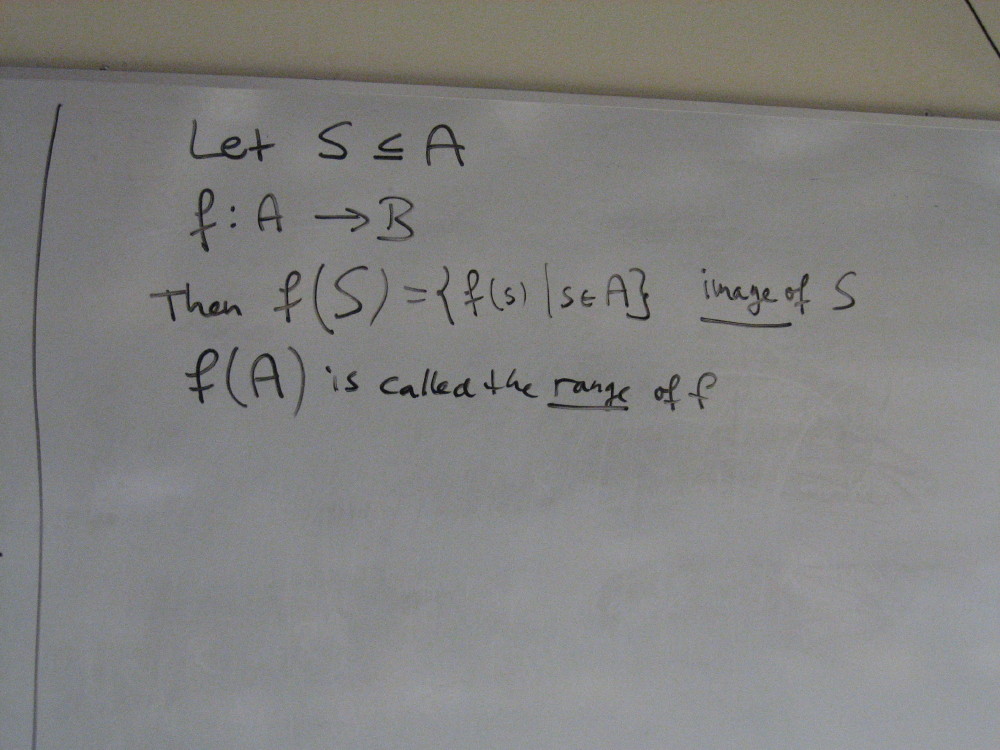 Let S ⊆ A
f: A → B
Then f(S) = {f(s) | s ∈ A} image of S
f(A) is called the range of f